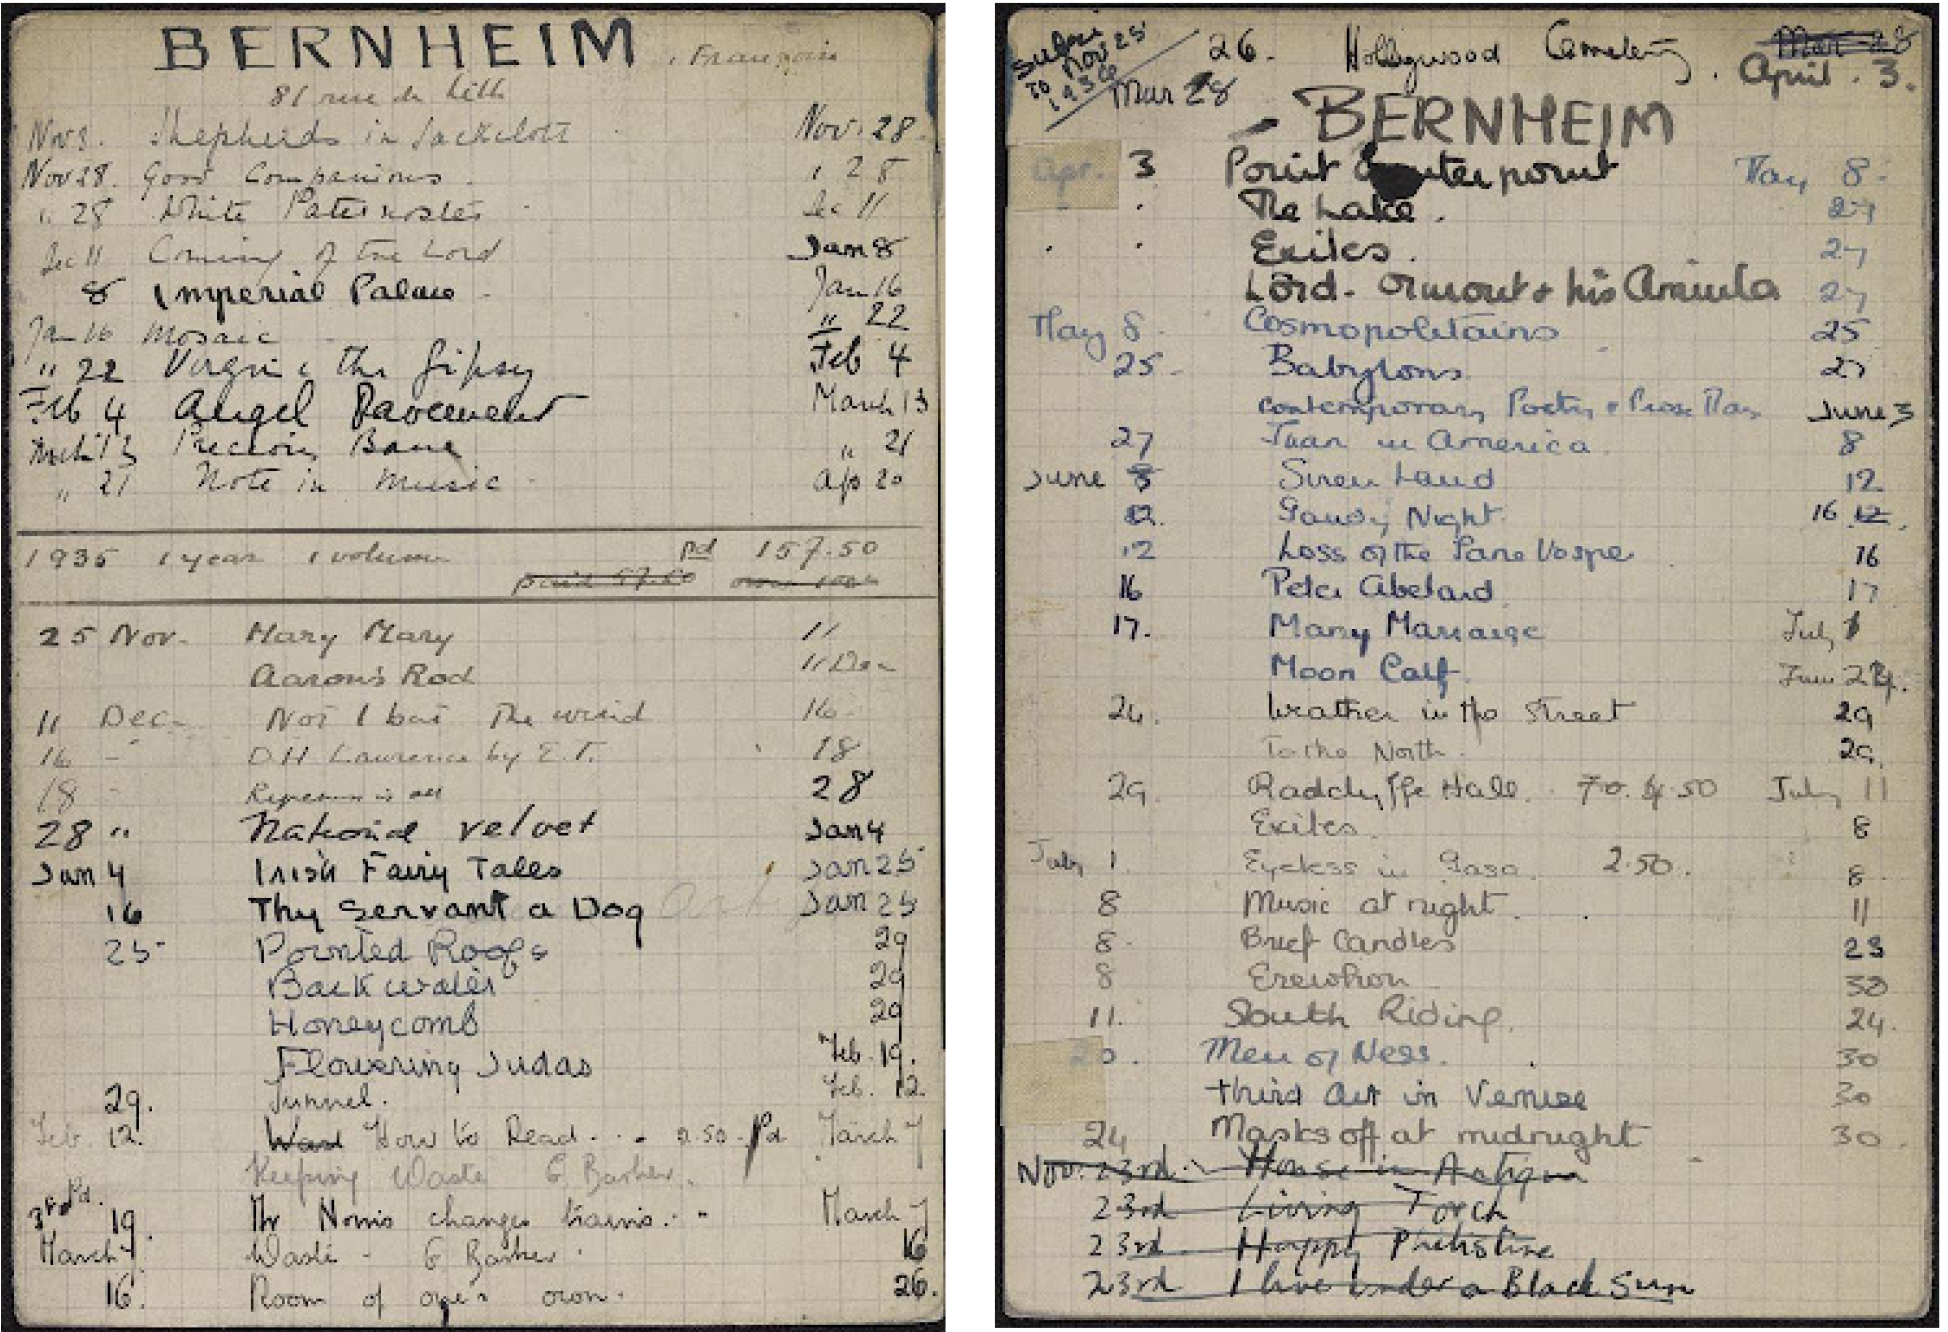 BERNHEIM, Françoise
81 rue de Lille
Nov 3. Shepherds in Sackcloth Nov. 28.
Nov 28. Good Companions. " 28
" 28 White Paternoster Dec 11
Dec 11 Coming of the Lord Jan 8
8 Imperial Palace. Jan 16
Jan 16 Mosaic " 22
" 22 Virgin & the Gipsy Feb 4
Feb 4 Angel Pavement March 13
March 13 Precious Bane " 21
" 21 Note in Music Apr 20
1935 1 year 1 volume pd 157.50
paid 57.50
25 Nov. Mary Mary 11
Aaron's Rod 11 Dec
11 Dec- Not I but the wind 16-
16 - D.H Lawrence by E.T. 18
18 - Ripeness is all 28
28 " National Velvet Jan 4
Jan 4 Irish Fairy Tales Jan 25
16 Thy Servant a Dog Jan 25
25- Pointed Roofs 29
Backwater 29
Honeycomb 29
Flowering Judas Feb. 19.
29. Tunnel. Feb. 12.
Feb. 12. How to Read - - - 2.50 - Pd March 7
Keeping Waste G Barker.
19. Mr Norris changes trains. - - March 7
March 7. Waste - G Barker. 16
16. Room of one's own. 26.
Subine to Nov 25 1936
Mar 28
26. Hollywood Cemetery. Mar 28
April. 3.
BERNHEIM
Apr. 3 Point Counterpoint May 8-
The Lake. 27
Exiles. 27
Lord. Ormont & his Aminta 27
May 8. Cosmopolitains 25
25- Babylons. 27
Contemporary Poetry & Prose May June 3
27 Juan in America. 8
June 8 Siren Land 12
12. Gaudy Night. 16 12.
12 Loss of the Jane Vosper 16
16 Peter Abelard. 17
17. Many Marriage July 1
Moon Calf. June 24.
24. Weather in the Street 29
To the North. 29.
29. Radclyffe Hall. 70. 4.50 July 11
Exiles. 8
July 1. Eyeless in Gaza. 2.50. 8.
8 Music at night. 11
8- Brief Candles 23
8 Erewhon 30
11. South Riding. 24.
20. Men of Ness. 30
Third Act in Venice 30
24 Masks off at midnight 30.
Nov. 23rd. House in Antigua
23rd Living Torch
23rd. Happy Philistine
23rd I live under a Black Sun